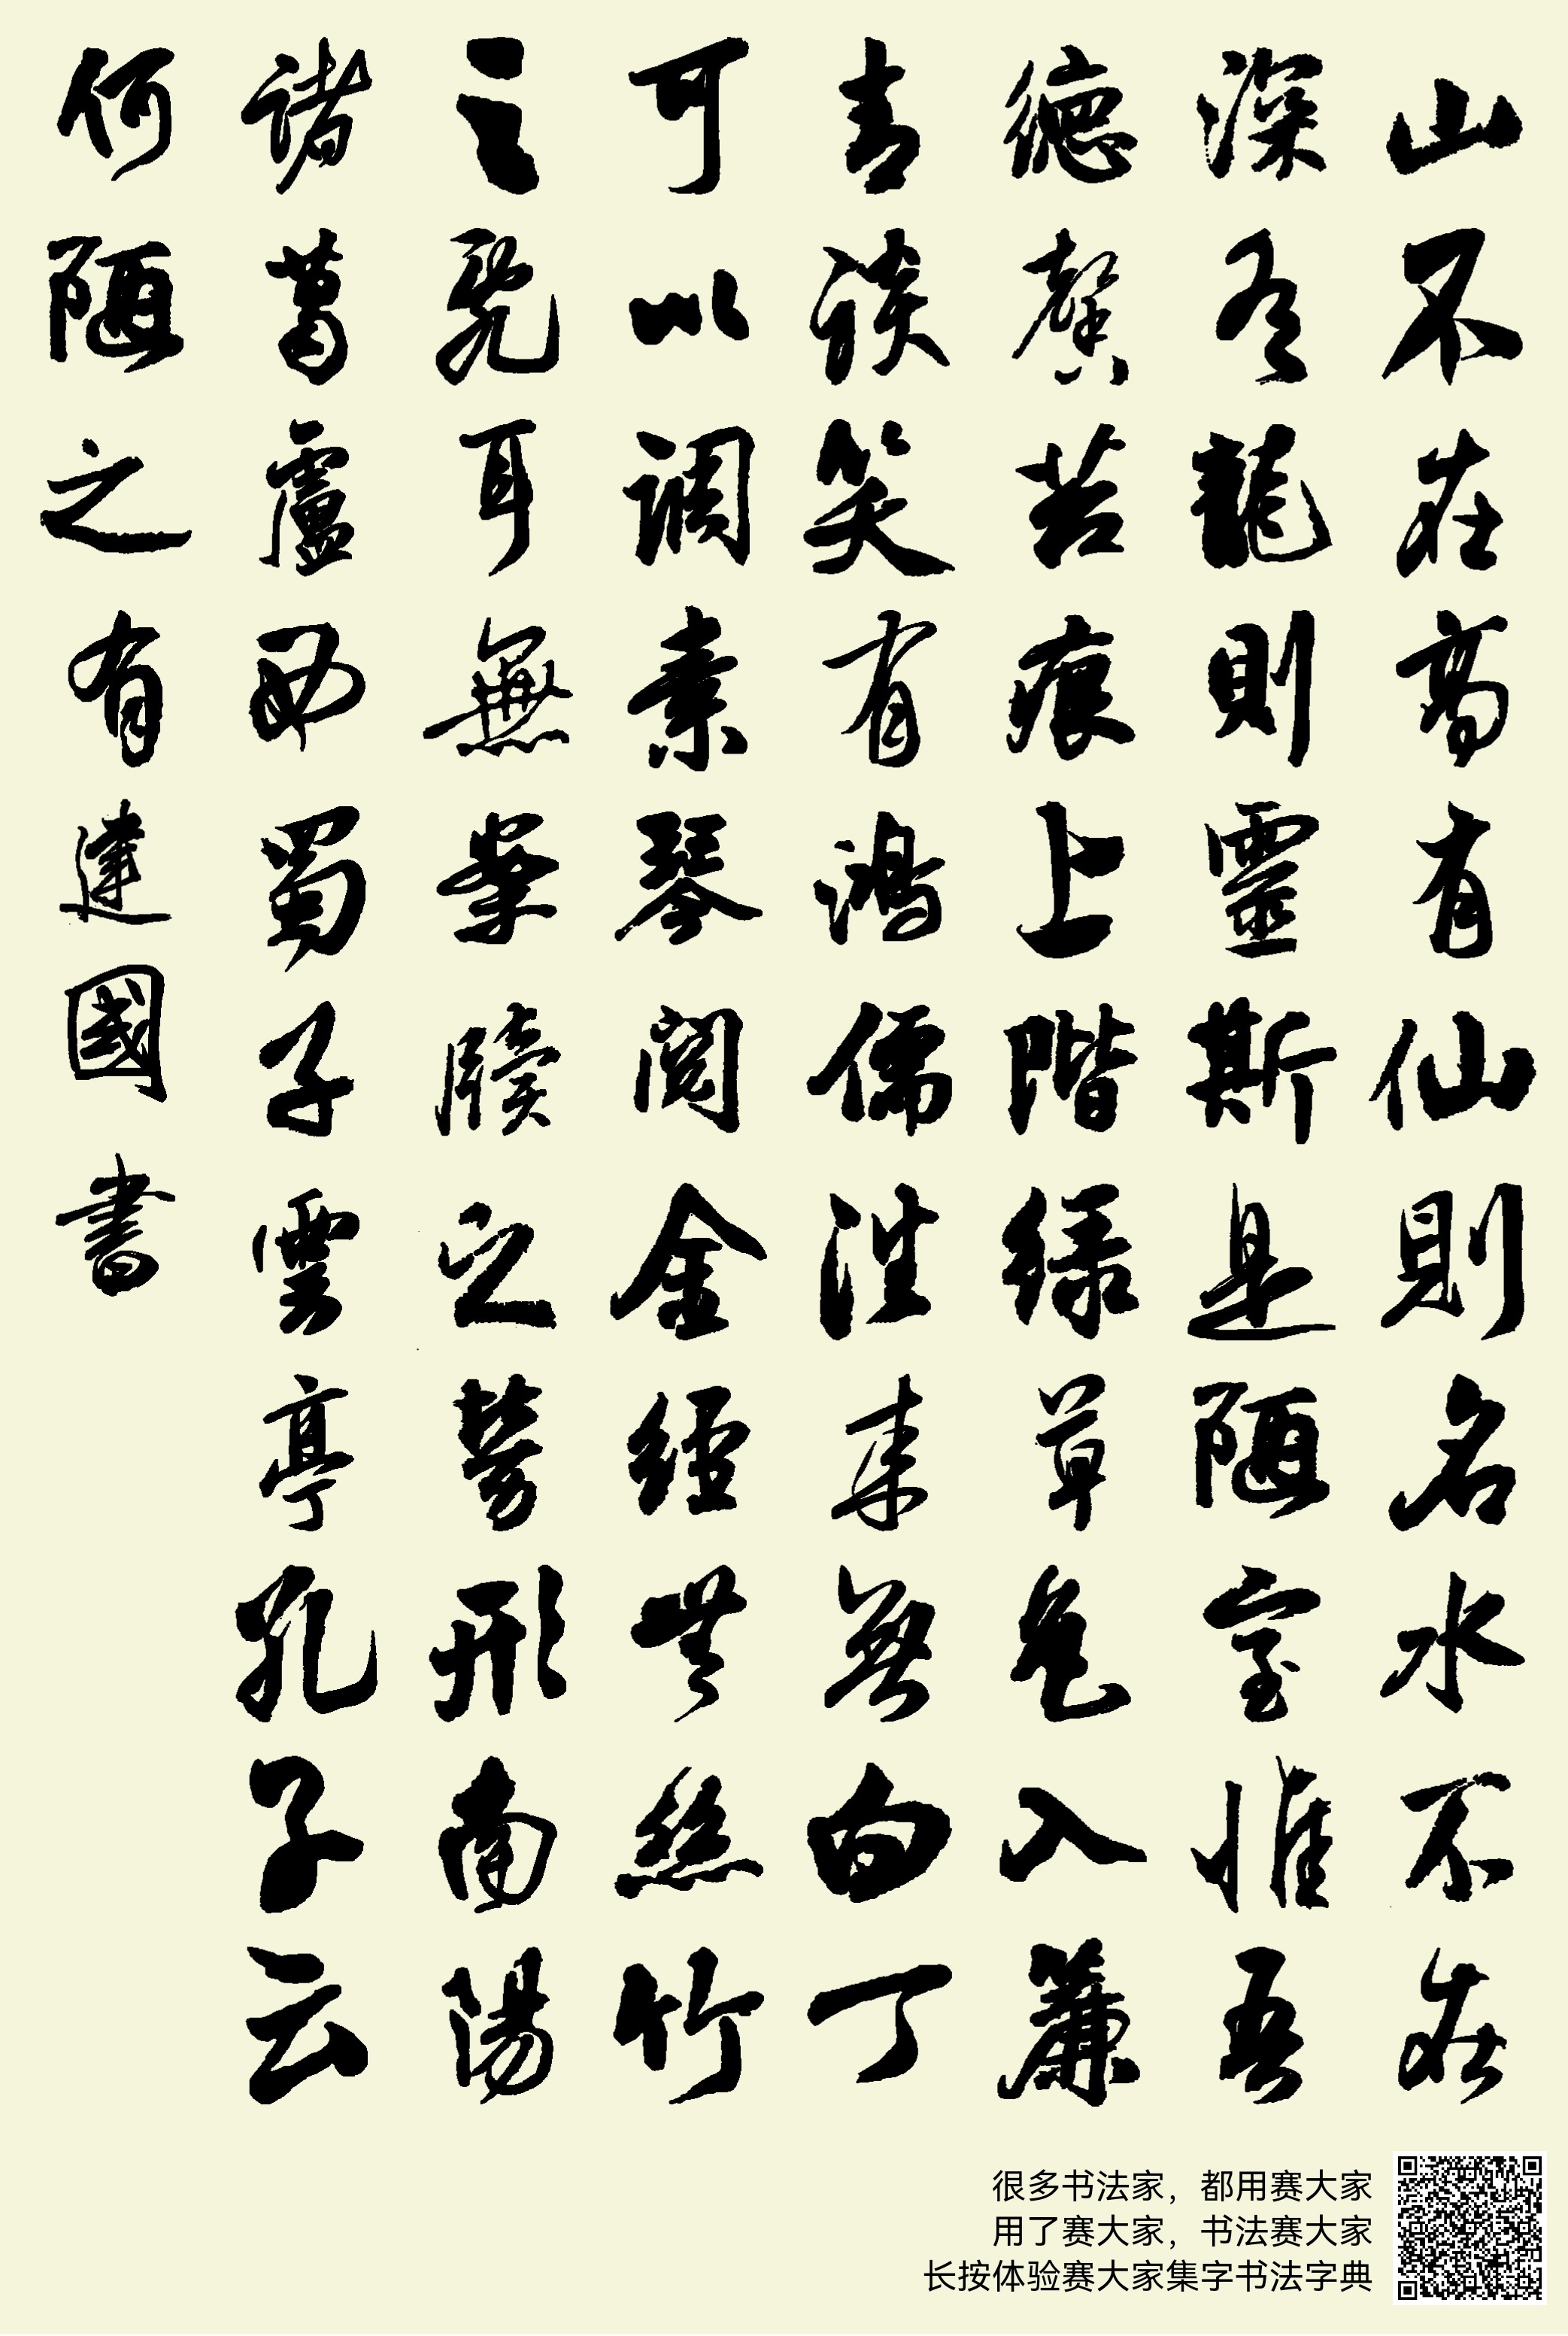 山不在高有仙則名水不在
深有龍則靈斯是陋室惟吾
德馨苔痕上階緑草色入簾
青談笑有鴻儒往来無白丁
可以調素琴閲金經無絲竹
之亂耳無案牘之勞形南陽
諸葛廬西蜀子雲亭孔子云
何陋之有達國書
很多书法家，都用赛大家
用了赛大家，书法赛大家
长按体验赛大家集字书法字典